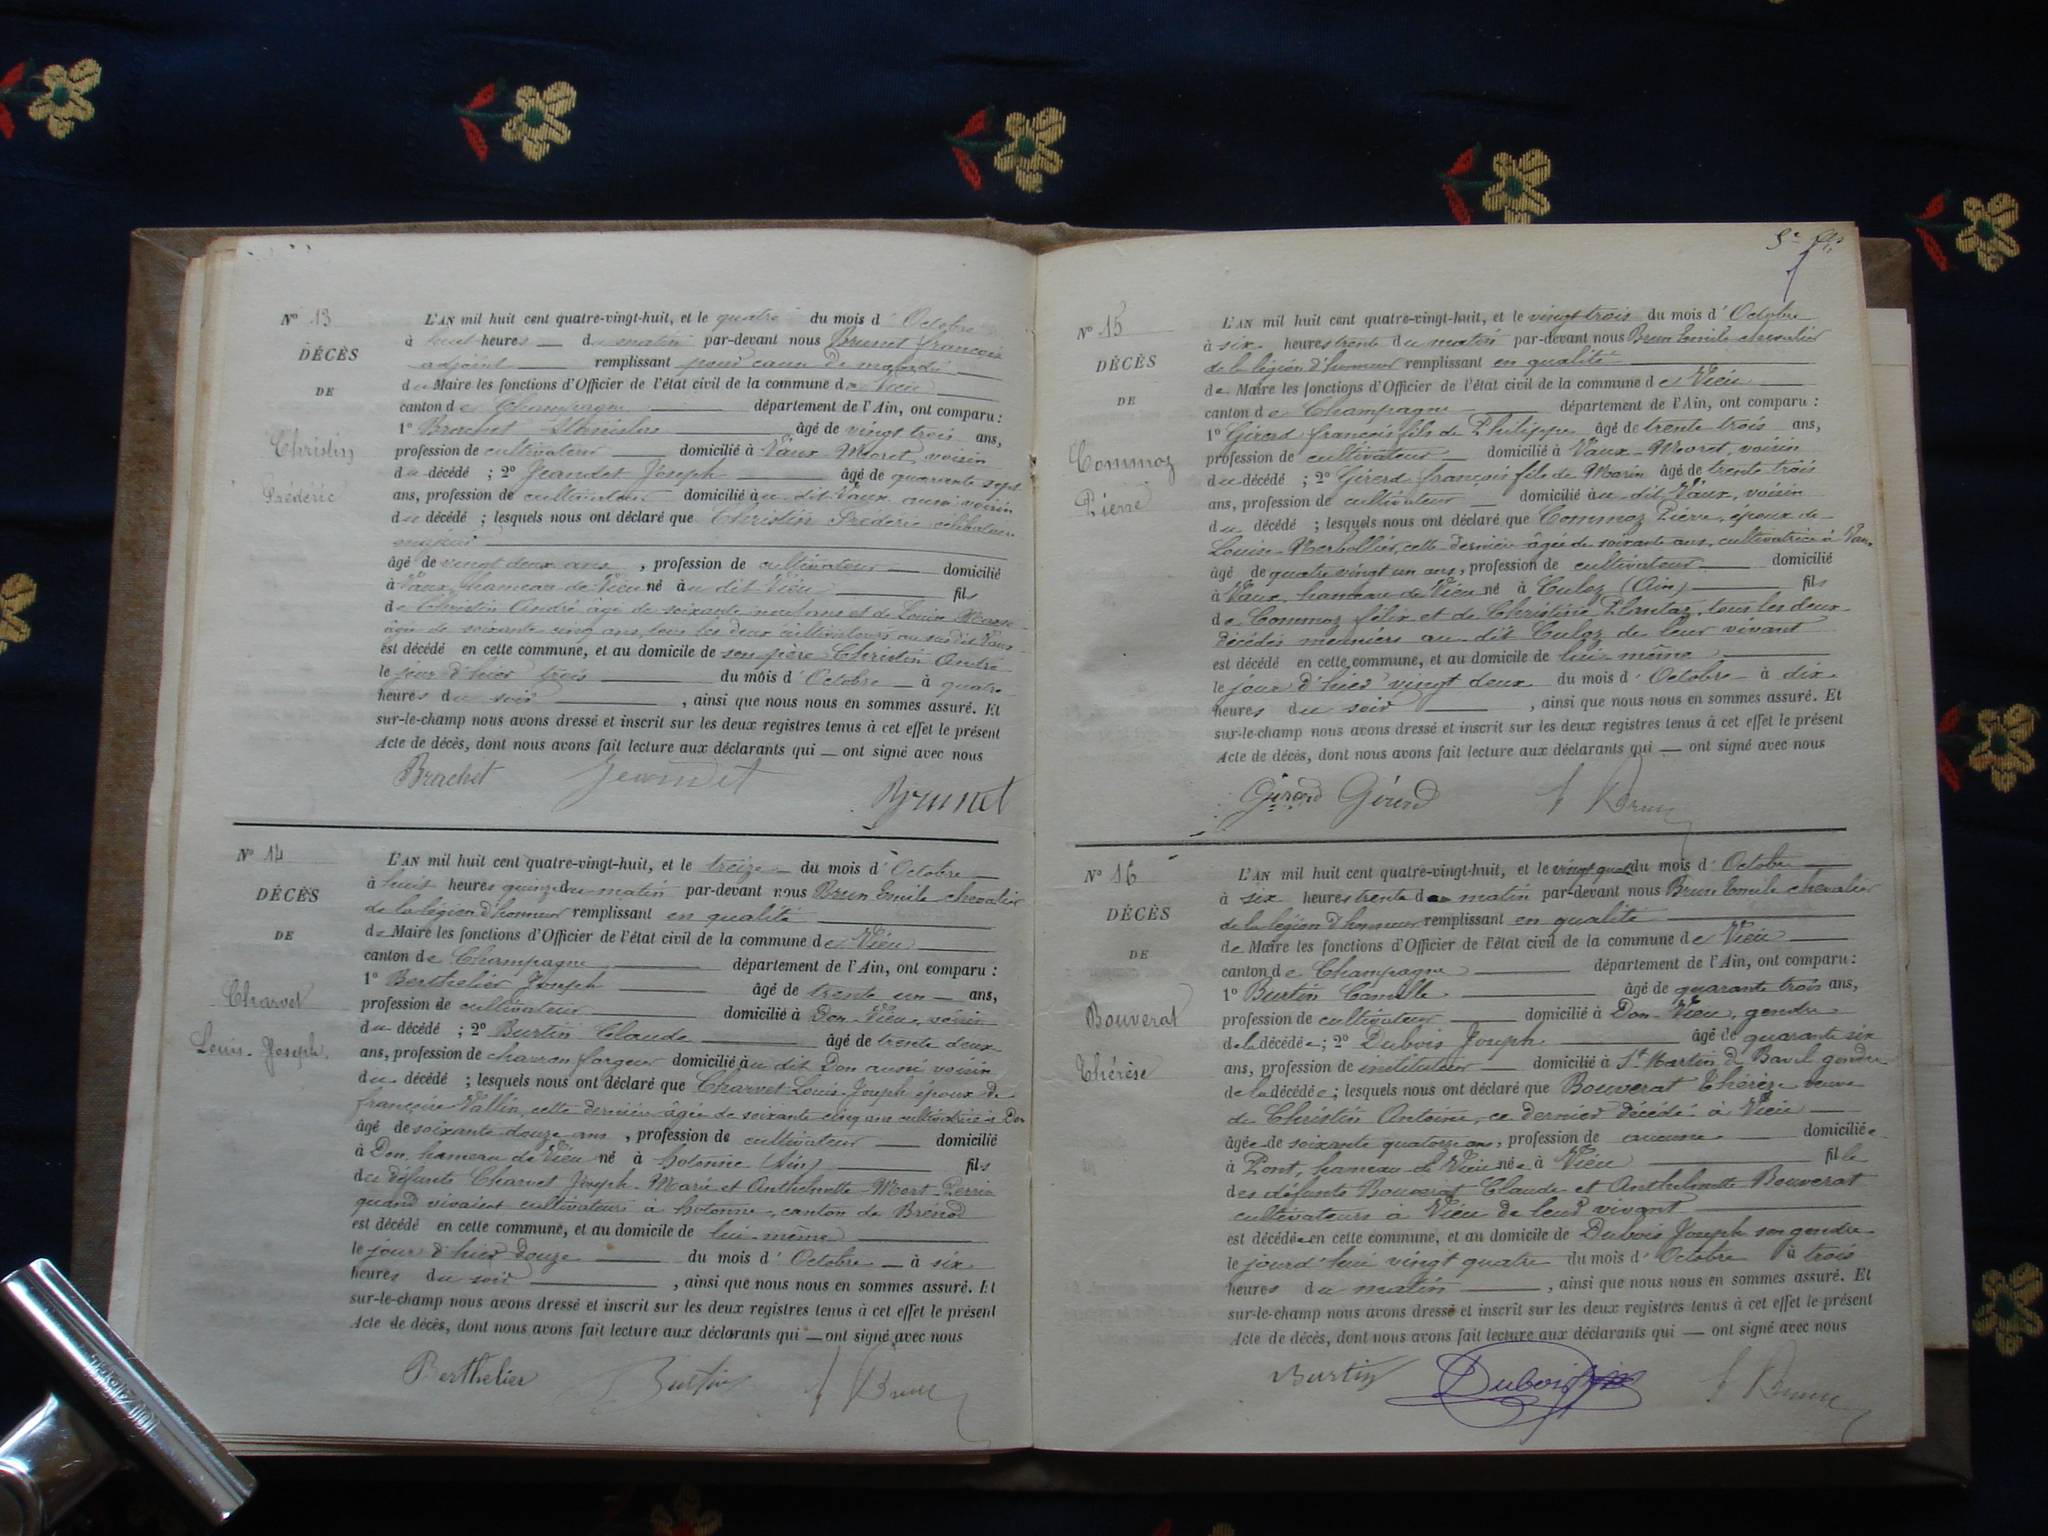 N° 13
DÉCÈS
DE
Christin
Frédéric
L'AN mil huit cent quatre-vingt-huit, et le quatre du mois d'Octobre
à huit heures du matin par-devant nous Brunet françois
adjoint remplissant pour cause de maladie
du Maire les fonctions d'Officier de l'état civil de la commune de Vieu
canton de Champagne département de l'Ain, ont comparu :
1° Brachet Stanislas âgé de vingt trois ans,
profession de cultivateur domicilié à Vaux-Moret, voisin
du décédé ; 2° Jeandet Joseph âgé de quarante sept
ans, profession de cultivateur domicilié au dit Vaux aussi voisin
du décédé ; lesquels nous ont déclaré que Christin Frédéric célibataire
majeur
âgé de vingt deux ans, profession de cultivateur domicilié
à Vaux, hameau de Vieu né au dit Vieu fils
de Christin André âgé de soixante neuf ans et de Louise
âgée de soixante cinq ans, tous les deux cultivateurs au susdit Vaux
est décédé en cette commune, et au domicile de son père Christin André
le jour d'hier trois du mois d'Octobre à quatre
heures du soir, ainsi que nous nous en sommes assuré. Et
sur-le-champ nous avons dressé et inscrit sur les deux registres tenus à cet effet le présent
Acte de décès, dont nous avons fait lecture aux déclarants qui — ont signé avec nous
Brachet Jeandet Brunet
N° 14
DÉCÈS
DE
Charvet
Louis-Joseph.
L'AN mil huit cent quatre-vingt-huit, et le treize du mois d'Octobre
à huit heures quinze du matin par-devant nous Brun Emile chevalier
de la légion d'honneur remplissant en qualité
de Maire les fonctions d'Officier de l'état civil de la commune de Vieu
canton de Champagne département de l'Ain, ont comparu :
1° Berthelier Joseph âgé de trente un ans,
profession de cultivateur domicilié à Don-Vieu, voisin
du décédé ; 2° Burtin Claude âgé de trente deux
ans, profession de charron forgeur domicilié au dit Don aussi voisin
du décédé ; lesquels nous ont déclaré que Charvet Louis-Joseph époux de
françoise Vallin, cette dernière âgée de soixante cinq ans cultivatrice à Don
âgé de soixante douze ans, profession de cultivateur domicilié
à Don, hameau de Vieu né à hotonne (Ain) fils
des défunts Charvet Joseph-Marie et Anthelmette Mort-Perrin
quand vivaient cultivateurs à hotonne, canton de Brénod
est décédé en cette commune, et au domicile de lui-même
le jour d'hier douze du mois d'Octobre à six
heures du soir, ainsi que nous nous en sommes assuré. Et
sur-le-champ nous avons dressé et inscrit sur les deux registres tenus à cet effet le présent
Acte de décès, dont nous avons fait lecture aux déclarants qui — ont signé avec nous
Berthelier Burtin E Brun
N° 15
DÉCÈS
DE
Commoz
Pierre
L'AN mil huit cent quatre-vingt-huit, et le vingt-trois du mois d'Octobre
à six heures trente du matin par-devant nous Brun Emile chevalier
de la légion d'honneur remplissant en qualité
de Maire les fonctions d'Officier de l'état civil de la commune de Vieu
canton de Champagne département de l'Ain, ont comparu :
1° Girerd françois fils de Philippe âgé de trente trois ans,
profession de cultivateur domicilié à Vaux-Moret, voisin
du décédé ; 2° Girerd françois fils de Marin âgé de trente trois
ans, profession de cultivateur domicilié au dit Vaux, voisin
du décédé ; lesquels nous ont déclaré que Commoz Pierre, époux de
Louise Merbollier, cette dernière âgée de soixante ans, cultivatrice à Vaux
âgé de quatre vingt un ans, profession de cultivateur domicilié
à Vaux, hameau de Vieu né à Culoz (Ain) fils
de Commoz félix et de Christine Plantaz, tous les deux
décédés meuniers au dit Culoz de leur vivant
est décédé en cette commune, et au domicile de lui-même
le jour d'hier vingt deux du mois d'Octobre à dix
heures du soir, ainsi que nous nous en sommes assuré. Et
sur-le-champ nous avons dressé et inscrit sur les deux registres tenus à cet effet le présent
Acte de décès, dont nous avons fait lecture aux déclarants qui — ont signé avec nous
Girerd Girerd E Brun
N° 16
DÉCÈS
DE
Bouverat
Thérèse
L'AN mil huit cent quatre-vingt-huit, et le vingt quatre du mois d'Octobre
à six heures trente du matin par-devant nous Brun Emile chevalier
de la légion d'honneur remplissant en qualité
de Maire les fonctions d'Officier de l'état civil de la commune de Vieu
canton de Champagne département de l'Ain, ont comparu :
1° Burtin Camille âgé de quarante trois ans,
profession de cultivateur domicilié à Don-Vieu, gendre
de la décédée ; 2° Dubois Joseph âgé de quarante six
ans, profession de instituteur domicilié à St Martin de Bavel gendre
de la décédée ; lesquels nous ont déclaré que Bouverat Thérèze veuve
de Christin Antoine, ce dernier décédé à Vieu
âgée de soixante quatorze ans, profession de aucune domiciliée
à Pont, hameau de Vieu née à Vieu fille
des défunts Bouverat Claude et Anthelmette Bouverat
cultivateurs à Vieu de leur vivant
est décédée en cette commune, et au domicile de Dubois Joseph son gendre
le jourd'hui vingt quatre du mois d'Octobre à trois
heures du matin, ainsi que nous nous en sommes assuré. Et
sur-le-champ nous avons dressé et inscrit sur les deux registres tenus à cet effet le présent
Acte de décès, dont nous avons fait lecture aux déclarants qui — ont signé avec nous
Burtin Dubois E Brun